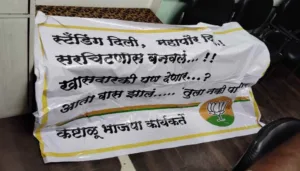 स्टँडिंग दिली, महापौर
सरचिटणीस बनवलं...!!
खासदारकी पण देणार...?
आता बास झालं..... तुला नक्की
कष्टाळू भाजपा कार्यकर्ते